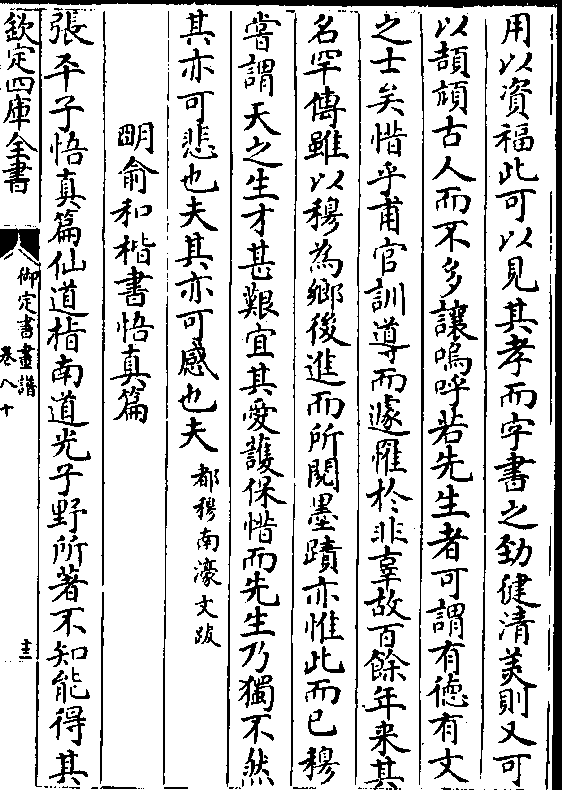 用以資福此可以見其孝而字書之勁健清美則又可
以頡頏古人而不多讓嗚呼若先生者可謂有德有文
之士矣惜乎甫官訓導而遽罹於非辜故百餘年来其
名罕傳雖以穆為鄉後進而所閱墨蹟亦惟此而已穆
嘗謂天之生才甚艱宜其愛護保惜而先生乃獨不然
其亦可悲也夫其亦可感也夫都穆南濠文跋
明俞和楷書悟真篇
張平子悟真篇仙道指南道光子野所著不知能得其
欽定四庫全書
御定書畫譜
卷八十